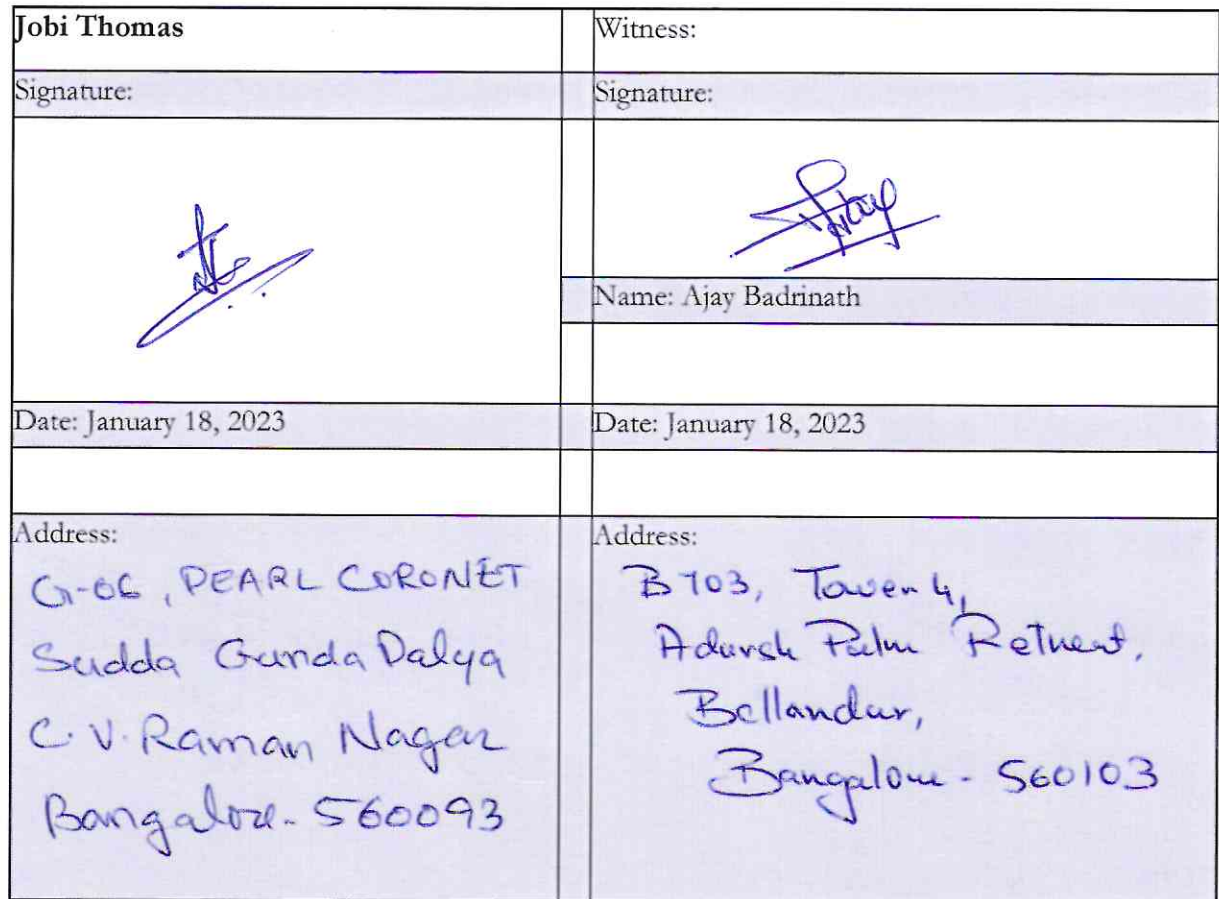 Jobi Thomas
Witness:
Signature:
Signature:
Ajay
Name: Ajay Badrinath
Date: January 18, 2023
Date: January 18, 2023
Address:
G-06, PEARL CORONET
Sudda Gunda Palya
C.V. Raman Nagar
Bangalore - 560093
Address:
B 703, Tower 4,
Adarsh Palm Retreat,
Bellandur,
Bangalore - 560103